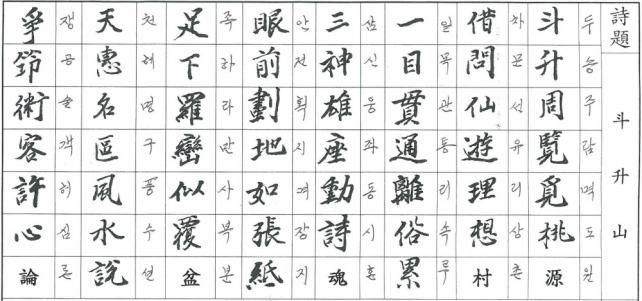 詩題 斗升山
斗升周覽覓桃源
두승주람멱도원
借問仙遊理想村
차문선유리상촌
一目貫通離俗累
일목관통리속루
三神雄座動詩魂
삼신웅좌동시혼
眼前劃地如張紙
안전획지여장지
足下羅巒似覆盆
족하라만사복분
天惠名區風水說
천혜명구풍수설
爭筇術客許心論
쟁공술객허심론